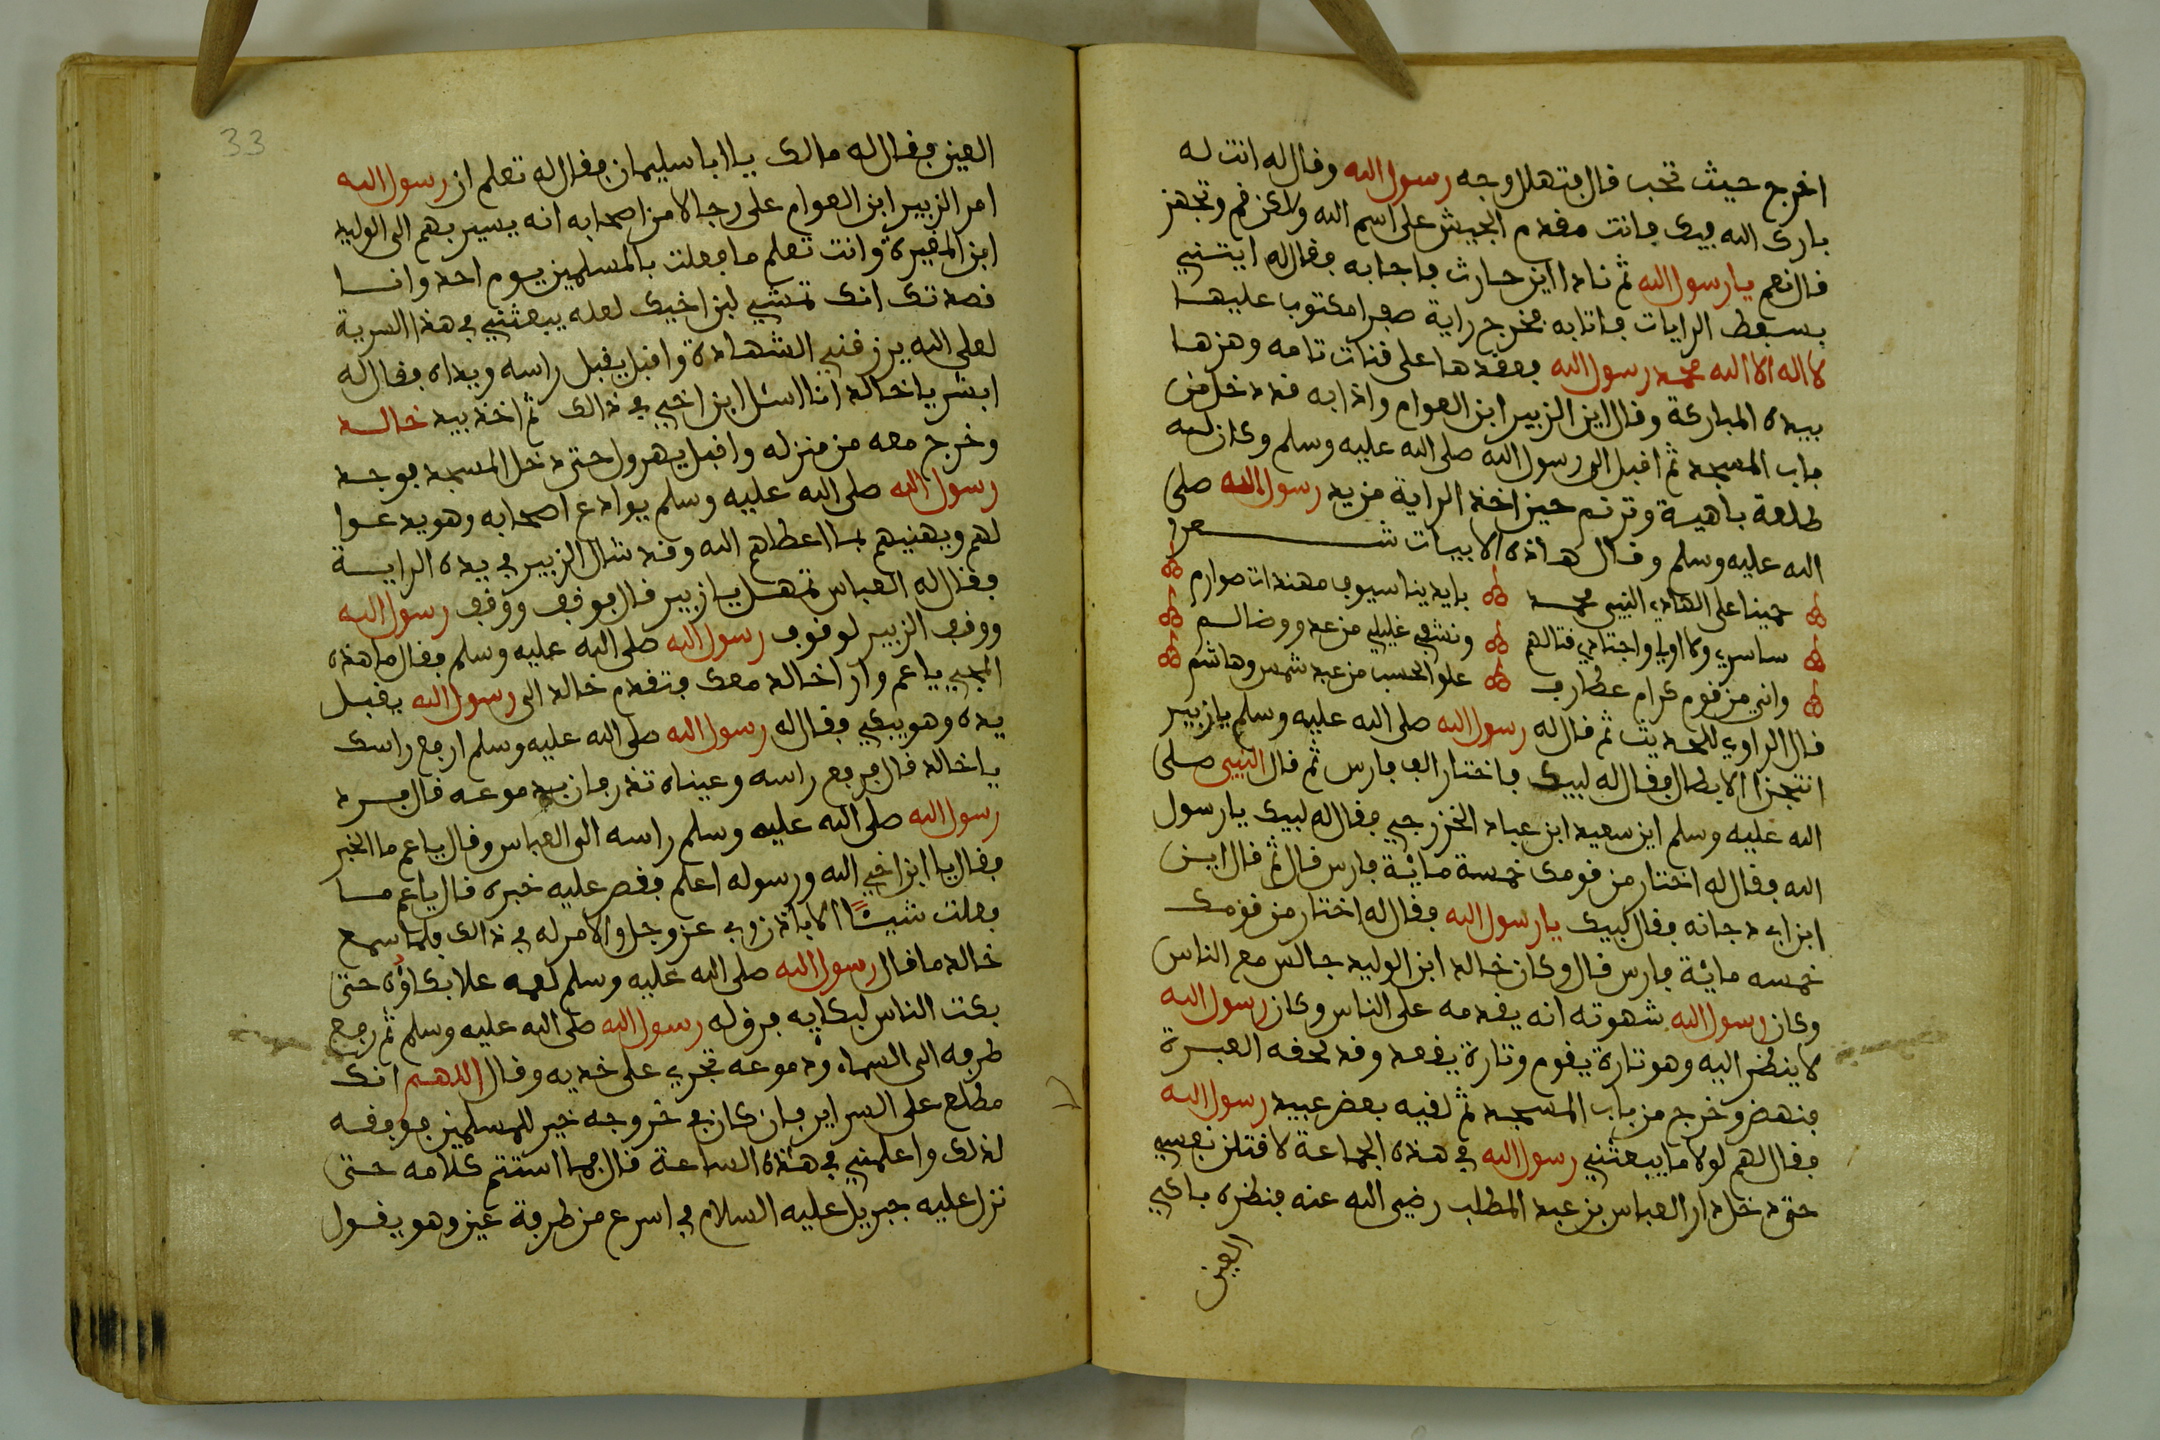 اخرج حيث تحب قال فتهلل وجه رسول الله وقال له انت له
بارك الله فيك فانت مقدم الجيش على اسم الله ولاكن قم وتجهز
قال نعم يا رسول الله ثم نادا اين حارث فاجابه فقال له ايتني
بسفط الرايات فاتا به فخرج راية صفرا مكتوب عليها
لا اله الا الله محمد رسول الله فعقدها على قنات تامه وهزها
بيده المباركة وقال اين الزبير ابن العوام واذا به قد دخل من
باب المسجد ثم اقبل الى رسول الله صلى الله عليه وسلم وكان له
طلعة باهية وترنم حين اخذ الراية من يد رسول الله صلى
الله عليه وسلم وقال هاذه الابيات شعرو
حمينا على الهادي النبي محمد بايدينا سيوف مهندات صوارم
ساسري ولا اويا واجتاد في قتالهم ونشفي غليلي من عدو وضالم
واني من قوم كرام عطارف علو الحسب من عبد شمس وهاشم
قال الراوي للحديث ثم قال له رسول الله صلى الله عليه وسلم يا زبير
انتجز الابطال فقال له لبيك فاختار الف فارس ثم قال النبي صلى
الله عليه وسلم اين سعيد ابن عباد الخزرجي فقال له لبيك يا رسول
الله فقال له اختار من قومك خمسة ماية فارس قال ثم قال اين
ابن ابي دجانه فقال لبيك يا رسول الله فقال له اختار من قومك
خمسه ماية فارس قال وكان خالد ابن الوليد جالس مع الناس
وكان رسول الله شهوته انه يقدمه على الناس وكان رسول الله
لا ينظر اليه وهو تارة يقوم وتارة يقعد وقد لحقه العبرة
فنهض وخرج من باب المسجد ثم لقيه بعض عبيد رسول الله
فقال لهم لولا ما يبعثني رسول الله في هذه الجماعة لاقتلن نفسي
حتى دخل دار العباس بن عبد المطلب رضي الله عنه فنظره باكي
العين
33
العين فقال له مالك يا ابا سليمان فقال له تعلم ان رسول الله
امر الزبير ابن العوام على رجالا من اصحابه انه يسير بهم الى الوليد
ابن المغيرة وانت تعلم ما فعلت بالمسلمين يوم احد وانا
قصدتك انك تمشي لبن اخيك لعله يبعثني في هذا السرية
لعلى الله يرزقني الشهادة واقبل يقبل راسه ويداه فقال له
ابشر يا خالد انا اسئل ابن اخي في ذالك ثم اخذ بيد خالد
وخرج معه من منزله واقبل يهرول حتى دخل المسجد فوجد
رسول الله صلى الله عليه وسلم يوادع اصحابه وهو يدعوا
لهم ويهنيهم بما اعطاهم الله وقد شال الزبير في يده الراية
فقال له العباس تمهل يا زبير قال فوقف ووقف رسول الله
ووقف الزبير لوقوف رسول الله صلى الله عليه وسلم فقال ما هذه
المجي يا عم وارا خالد معك فتقدم خالد الى رسول الله يقبل
يده وهو يبكي فقال له رسول الله صلى الله عليه وسلم ارفع راسك
يا خالد قال فرفع راسه وعيناه تذرفان بدموعه قال فرد
رسول الله صلى الله عليه وسلم راسه الى العباس وقال يا عم ما الخبر
فقال يا ابن اخي الله ورسوله اعلم فقص عليه خبره قال يا عم ما
فعلت شيئا الا باذن ربي عز وجل والامر له في ذالك فلما سمع
خالد ما قال رسول الله صلى الله عليه وسلم لعمه علا بكاؤه حتى
بكت الناس لبكايه فرق له رسول الله صلى الله عليه وسلم ثم رجع
طرفه الى السماء ودموعه تجري على خديه وقال اللهم انك
مطلع على السراير فان كان في خروجه خير للمسلمين فوفقه
لذلك واعلمني في هذه الساعة قال فما استتم كلامه حتى
نزل عليه جبريل عليه السلام في اسرع من طرفة عين وهو يقول